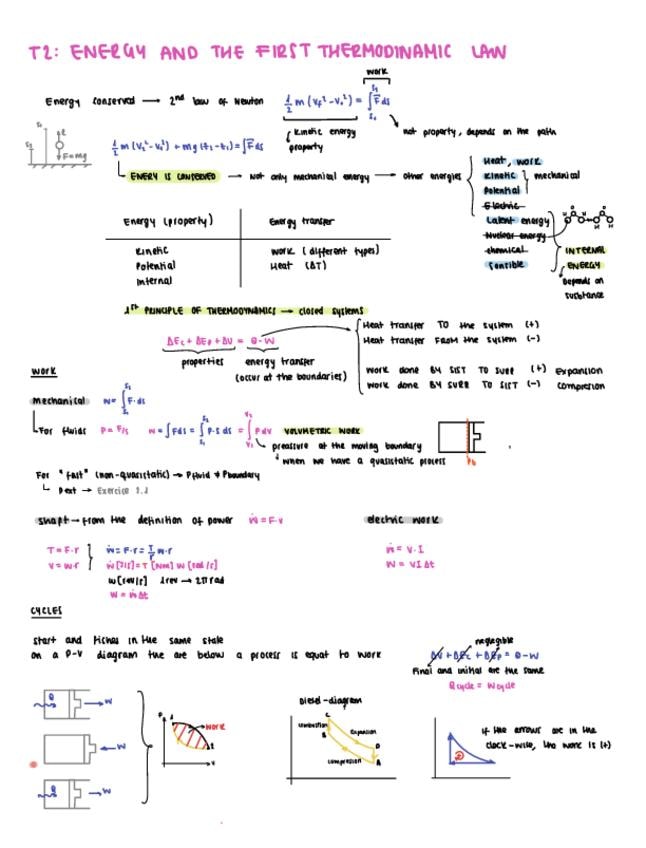 T2: ENERGY AND THE FIRST THERMODINAMIC LAW
Energy conserved → 2nd law of Newton
work
1/2 m (Vf² - Vo²) = ∫ F ds
Kinetic energy
property
not property, depends on the path
F=mg
ENERY IS CONSERVED → Not only mechanical energy → other energies
Heat, work
Kinetic
Potential
mechanical
Electric
Latent energy
Nuclear energy
chemical
Sensible
INTERNAL
ENERGY
Depends on
substance
Energy (property) Energy transfer
Kinetic work (different types)
Potential Heat (ΔT)
Internal
1st PRINCIPLE OF THERMODYNAMICS → closed systems
ΔEc + ΔEp + ΔU = Q - W
properties energy transfer
(occur at the boundaries)
Heat transfer TO the system (+)
Heat transfer FROM the system (-)
work done BY SIST TO SURR (+) Expansion
work done BY SURR TO SIST (-) Compresion
WORK
mechanical W = ∫ F·ds
For fluids P = F/s W = ∫ Fds = ∫ P·S ds = ∫ P dV VOLUMETRIC WORK
preassure at the moving boundary
when we have a quasistatic process
Pb
For "fast" (non-quasistatic) → Pfluid ≠ Pboundary
Pext → Exercise 2.2
shaft → from the definition of power Ẇ = F·v
T = F·r
V = w·r
Ẇ = F·r = T/r w·r
Ẇ [J/s] = T [Nm] W [rad/s]
w [rev/s] 1rev → 2π rad
W = Ẇ Δt
electric work
Ẇ = V·I
W = VI Δt
CYCLES
start and finhes in the same state
on a P-V diagram the are below a process is equat to work
neglegible
ΔU + ΔEc + ΔEp = Q - W
Final and initial are the same
Qcycle = Wcycle
Q W
W
Q W
P
1
WORK
2
V
Diesel-diagram
C
combustion
B
Expansion
D
compresion
A
if the arrows are in the
clock-wise, the work is (+)